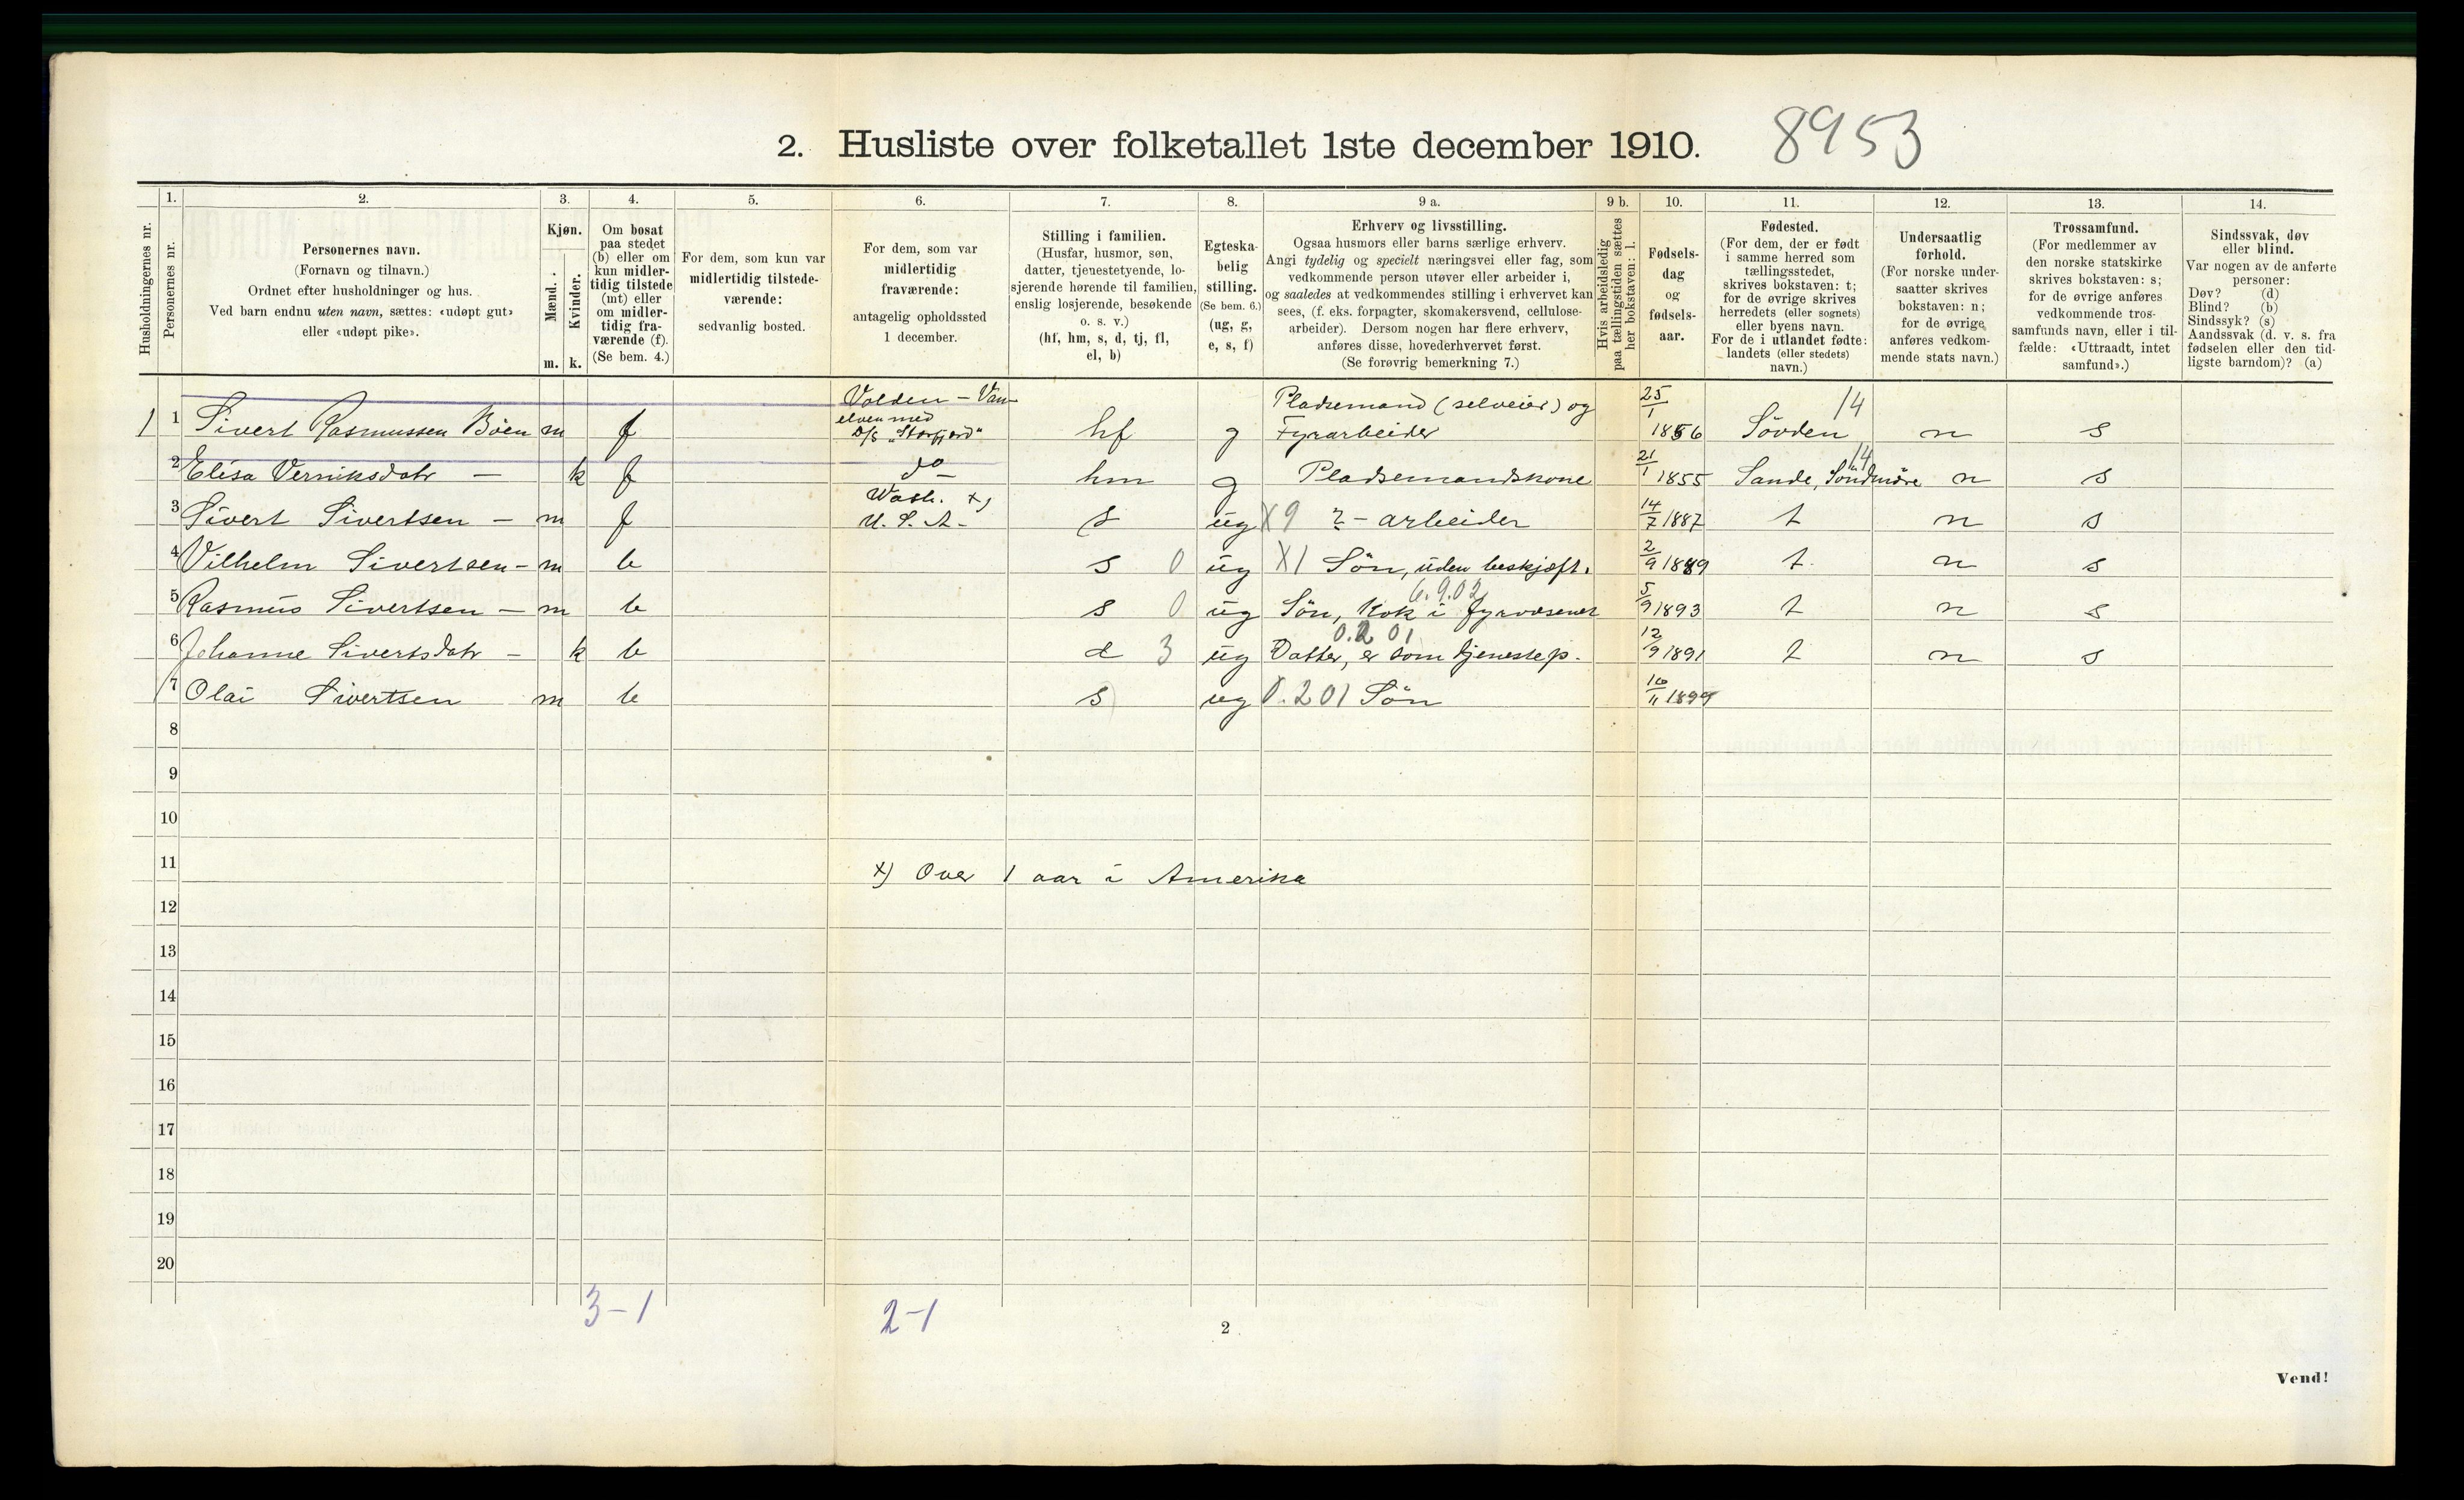 2. Husliste over folketallet 1ste december 1910. 8953
Husholdningernes nr.
1.
Personernes nr.
2.
Personernes navn.
(Fornavn og tilnavn.)
Ordnet efter husholdninger og hus.
Ved barn endnu uten navn, sættes: «udøpt gut»
eller «udøpt pike».
3.
Kjøn.
Mænd.
Kvinder.
m. k.
4.
Om bosat
paa stedet
(b) eller om
kun midler-
tidig tilstede
(mt) eller
om midler-
tidig fra-
værende (f).
(Se bem. 4.)
5.
For dem, som kun var
midlertidig tilstede-
værende:
sedvanlig bosted.
6.
For dem, som var
midlertidig
fraværende:
antagelig opholdssted
1 december.
7.
Stilling i familien.
(Husfar, husmor, søn,
datter, tjenestetyende, lo-
sjerende hørende til familien,
enslig losjerende, besøkende
o. s. v.)
(hf, hm, s, d, tj, fl,
el, b)
8.
Egteska-
belig
stilling.
(Se bem. 6.)
(ug, g,
e, s, f)
9 a.
Erhverv og livsstilling.
Ogsaa husmors eller barns særlige erhverv.
Angi tydelig og specielt næringsvei eller fag, som
vedkommende person utøver eller arbeider i,
og saaledes at vedkommendes stilling i erhvervet kan
sees, (f. eks. forpagter, skomakersvend, cellulose-
arbeider). Dersom nogen har flere erhverv,
anføres disse, hovederhvervet først.
(Se forøvrig bemerkning 7.)
9 b.
Hvis arbeidsledig
paa tællingstiden sættes
her bokstaven: l.
10.
Fødsels-
dag
og
fødsels-
aar.
11.
Fødested.
(For dem, der er født
i samme herred som
tællingsstedet,
skrives bokstaven: t;
for de øvrige skrives
herredets (eller sognets)
eller byens navn.
For de i utlandet fødte:
landets (eller stedets)
navn.)
12.
Undersaatlig
forhold.
(For norske under-
saatter skrives
bokstaven: n;
for de øvrige
anføres vedkom-
mende stats navn.)
13.
Trossamfund.
(For medlemmer av
den norske statskirke
skrives bokstaven: s;
for de øvrige anføres
vedkommende tros-
samfunds navn, eller i til-
fælde: «Uttraadt, intet
samfund».)
14.
Sindssvak, døv
eller blind.
Var nogen av de anførte
personer:
Døv? (d)
Blind? (b)
Sindssyk? (s)
Aandssvak (d. v. s. fra
fødselen eller den tid-
ligste barndom)? (a)
Volden – Van-
elven med
D/S "Storfjord"
Pladsemand (selveier) og
1 1 Sivert Rasmussen Böen m f hf g Fyrarbeider 25/1 1856 Sövden 14 n s
2 Elisa Verniksdatr – k f do – hm g Pladsemandskone 21/1 1855 Sande, Söndmöre 14 n s
Wash. x)
3 Sivert Sivertsen – m f U. S. A – s ug X9 ? – arbeider 14/7 1887 t n s
4 Vilhelm Sivertsen – m b s 0 ug X1 Sön, uden beskjæft. 2/9 1889 t n s
6.9.02
5 Rasmus Sivertsen – m b s 0 ug Sön, Kok i fyrvæsenet 5/9 1893 t n s
0.2 01
6 Johanne Sivertsdatr – k b d 3 ug Datter, er som tjenestep. 12/9 1891 t n s
7 Olai Sivertsen m b s ug 0.201 Sön 16/11 1899
8
9
10
11
x) Over 1 aar i Amerika
12
13
14
15
16
17
18
19
20
3-1
2-1
2
Vend!